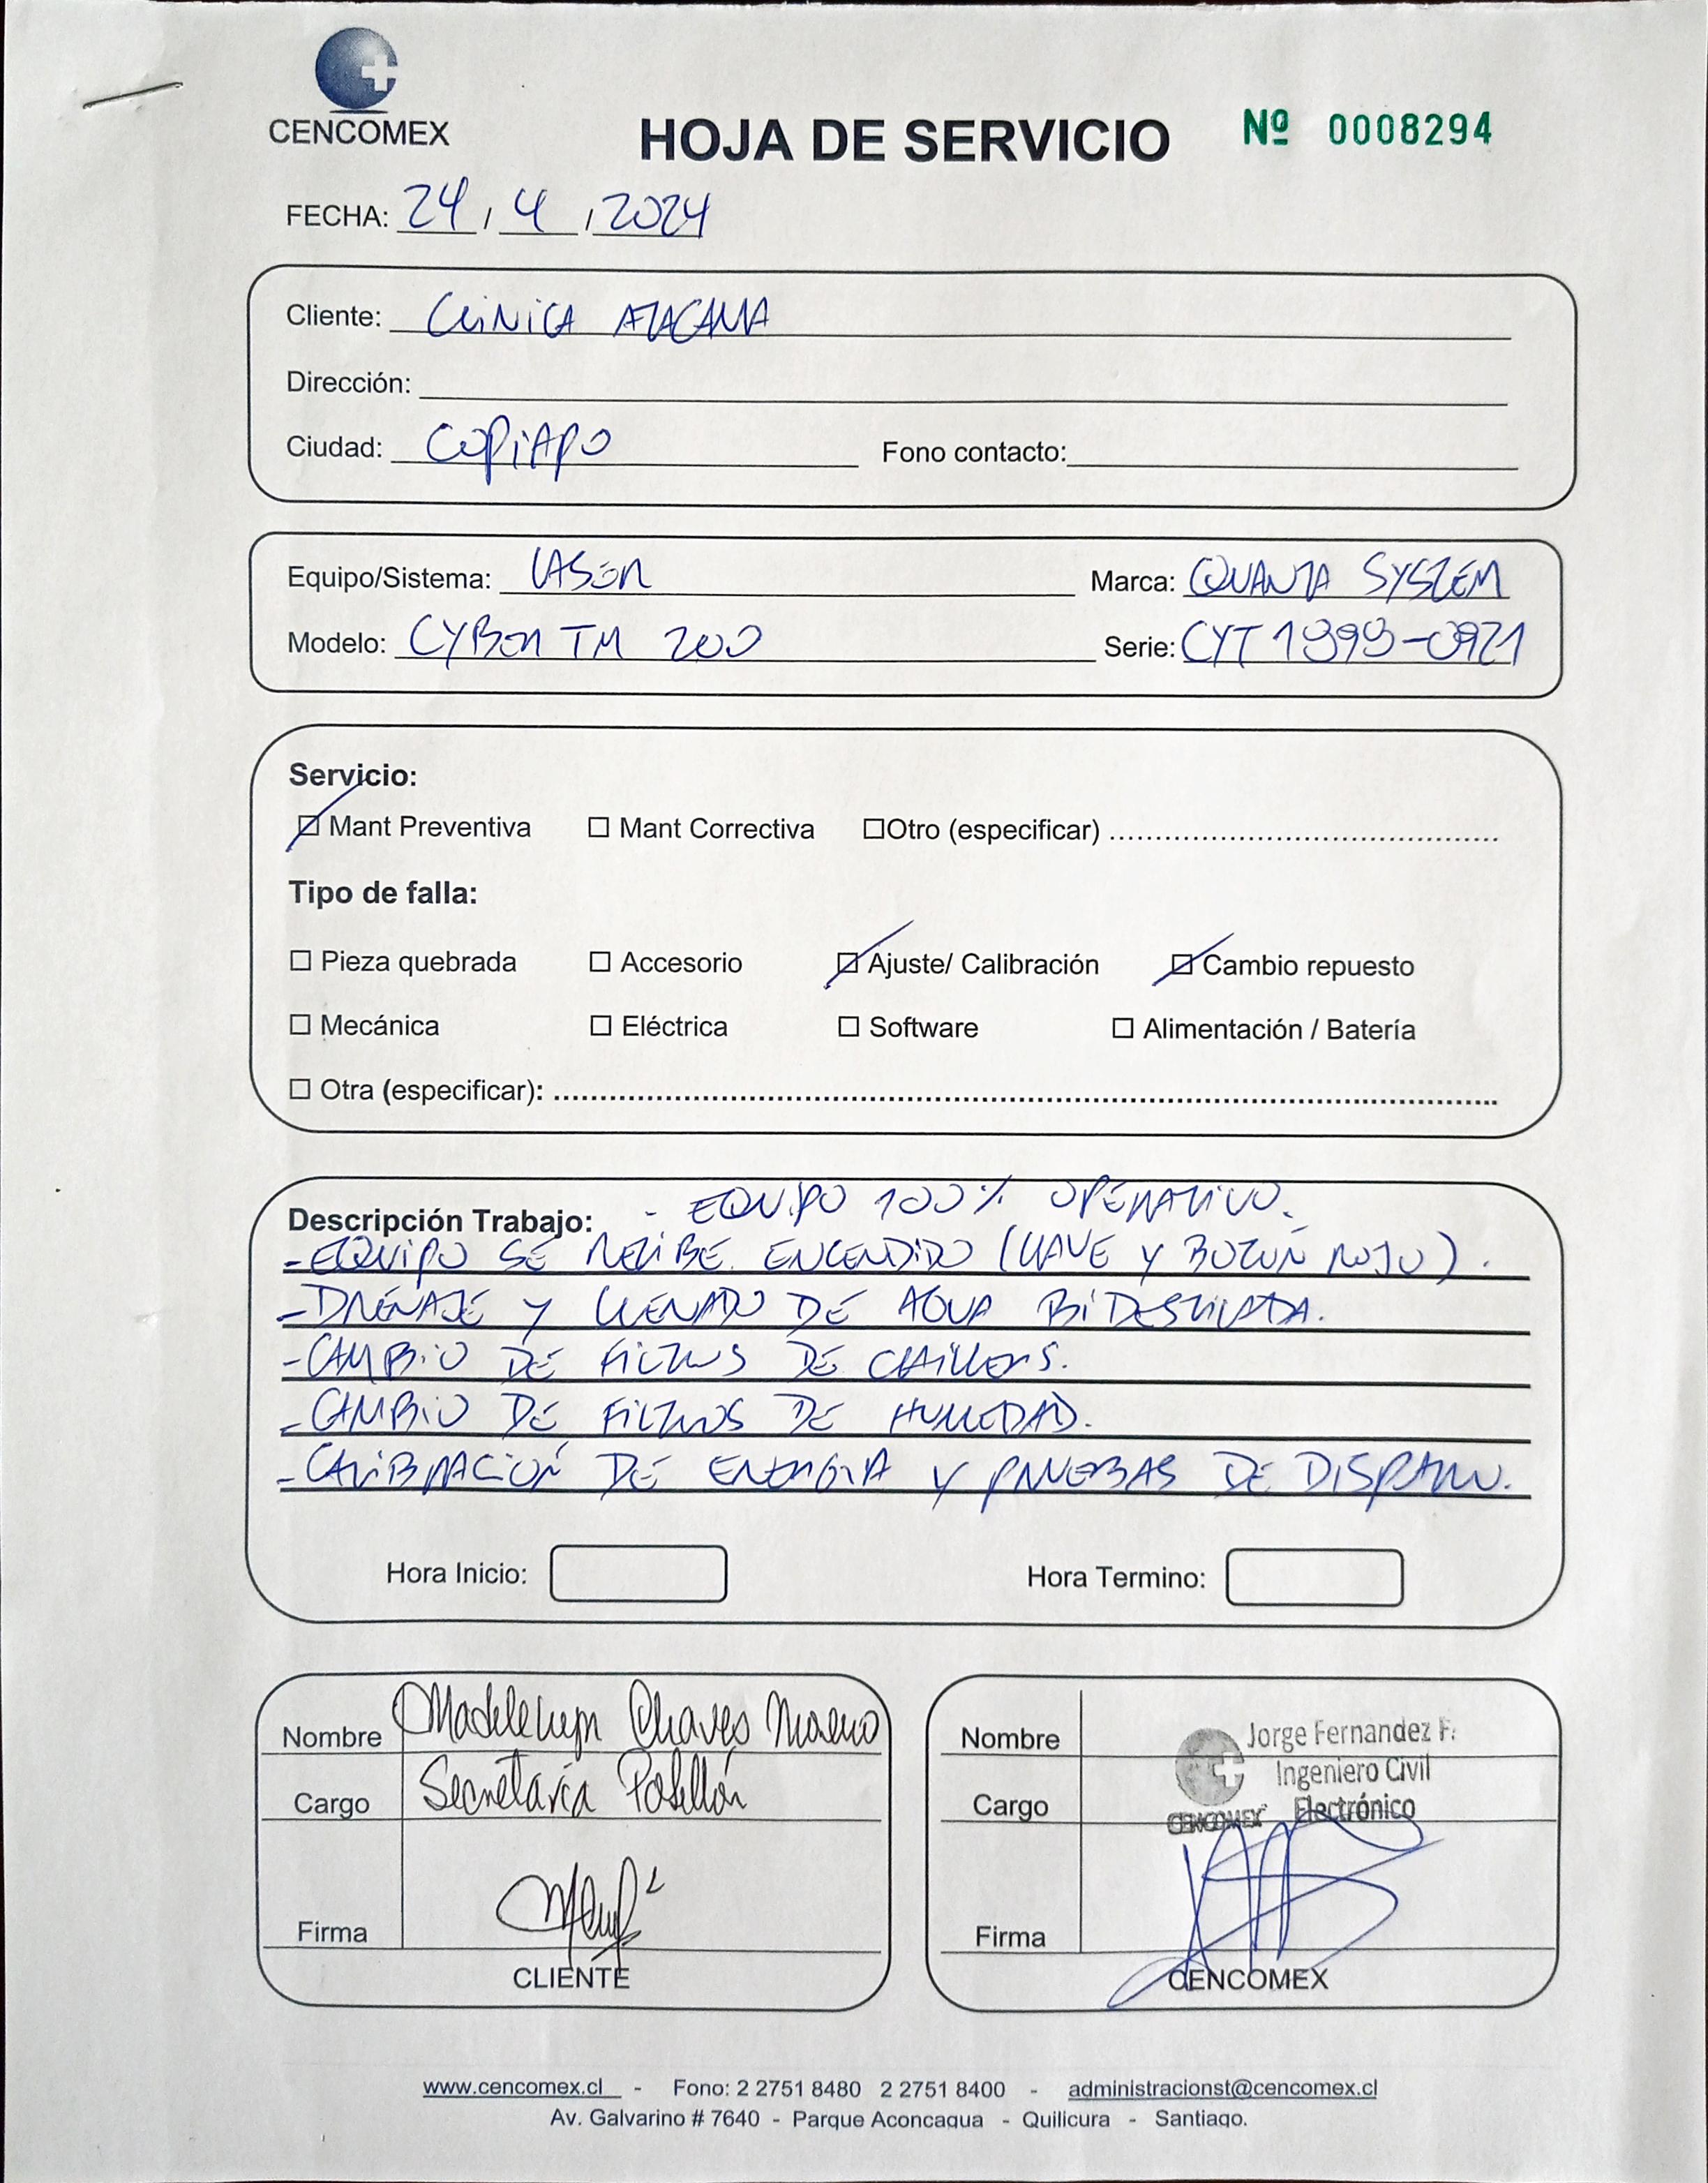 CENCOMEX
HOJA DE SERVICIO Nº 0008294
FECHA: 24 / 4 / 2024
Cliente: CLINICA ATACAMA
Dirección:
Ciudad: COPIAPO Fono contacto:
Equipo/Sistema: LASER Marca: QUANTA SYSTEM
Modelo: CYBER TM 200 Serie: CYT1999-0921
Servicio:
Mant Preventiva Mant Correctiva Otro (especificar)
Tipo de falla:
Pieza quebrada Accesorio Ajuste/ Calibración Cambio repuesto
Mecánica Eléctrica Software Alimentación / Batería
Otra (especificar):
Descripción Trabajo: - EQUIPO 100% OPERATIVO.
- EQUIPO SE RECIBE ENCENDIDO (LLAVE Y BOTÓN ROJO).
- DRENAJE Y LLENADO DE AGUA BIDESTILADA.
- CAMBIO DE FILTROS DE CHILLERS.
- CAMBIO DE FILTROS DE HUMEDAD.
- CALIBRACIÓN DE ENERGIA Y PRUEBAS DE DISPARO.
Hora Inicio: Hora Termino:
Nombre Madeleyn Chaves Moreno
Cargo Secretaria Pabellón
Firma
CLIENTE
Nombre Jorge Fernandez F.
Cargo Ingeniero Civil
CENCOMEX Electrónico
Firma
CENCOMEX
www.cencomex.cl - Fono: 2 2751 8480 2 2751 8400 - administracionst@cencomex.cl
Av. Galvarino # 7640 - Parque Aconcagua - Quilicura - Santiago.